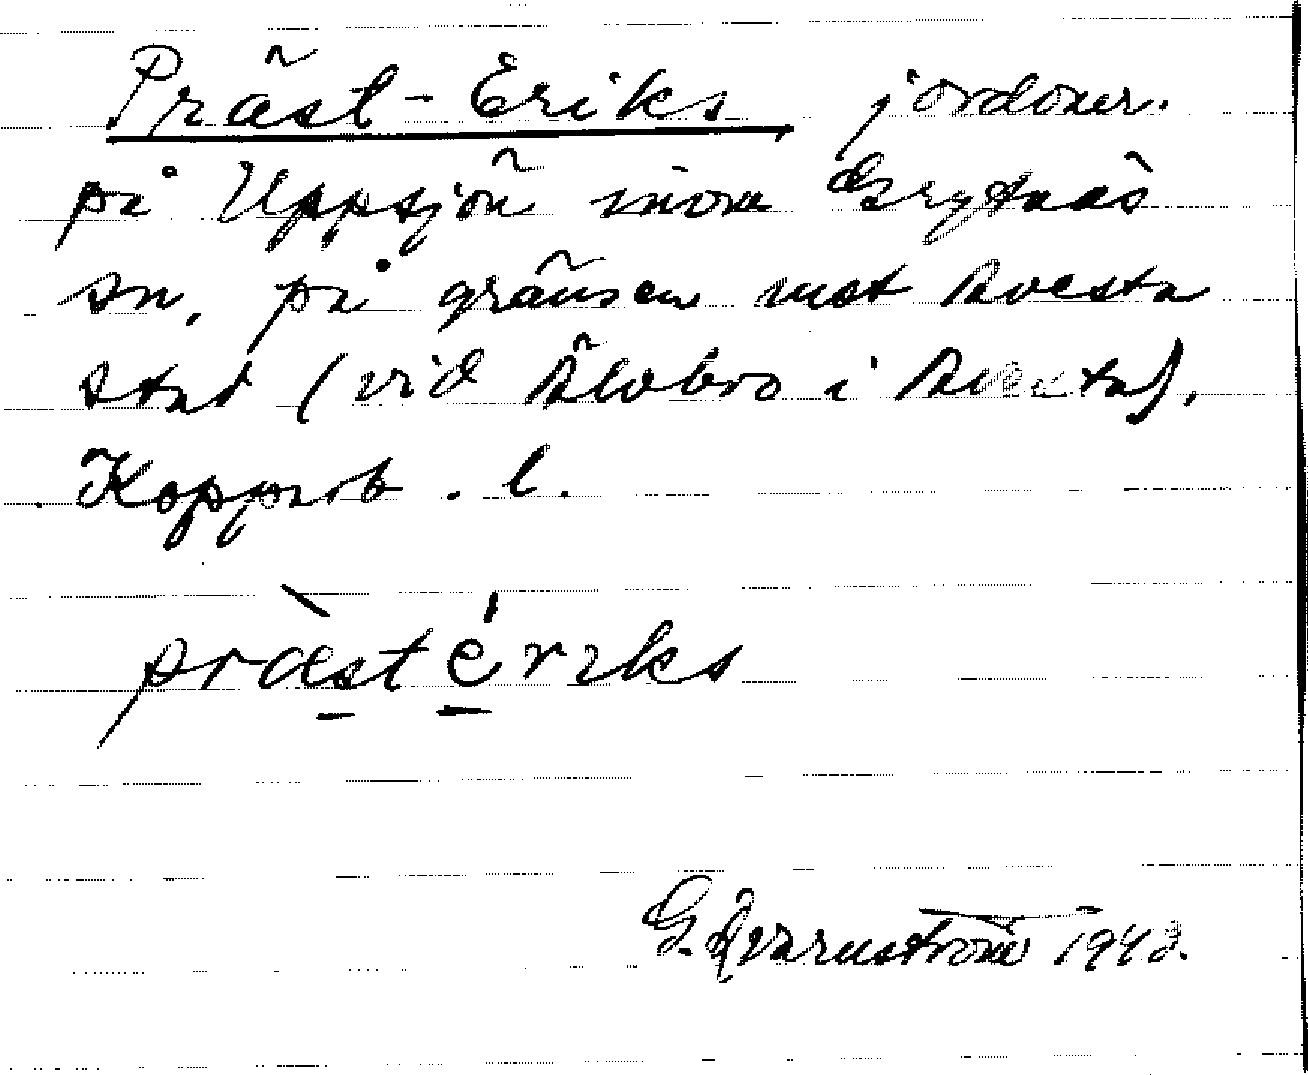 Präst-Eriks jordäner.
på Uppsjön inom Grytnäs
sn, på gränsen mot Avesta
stad (vid Älvbro i Avesta).
Kopparb. l.
prästériks
G. Qvarnström 1942.